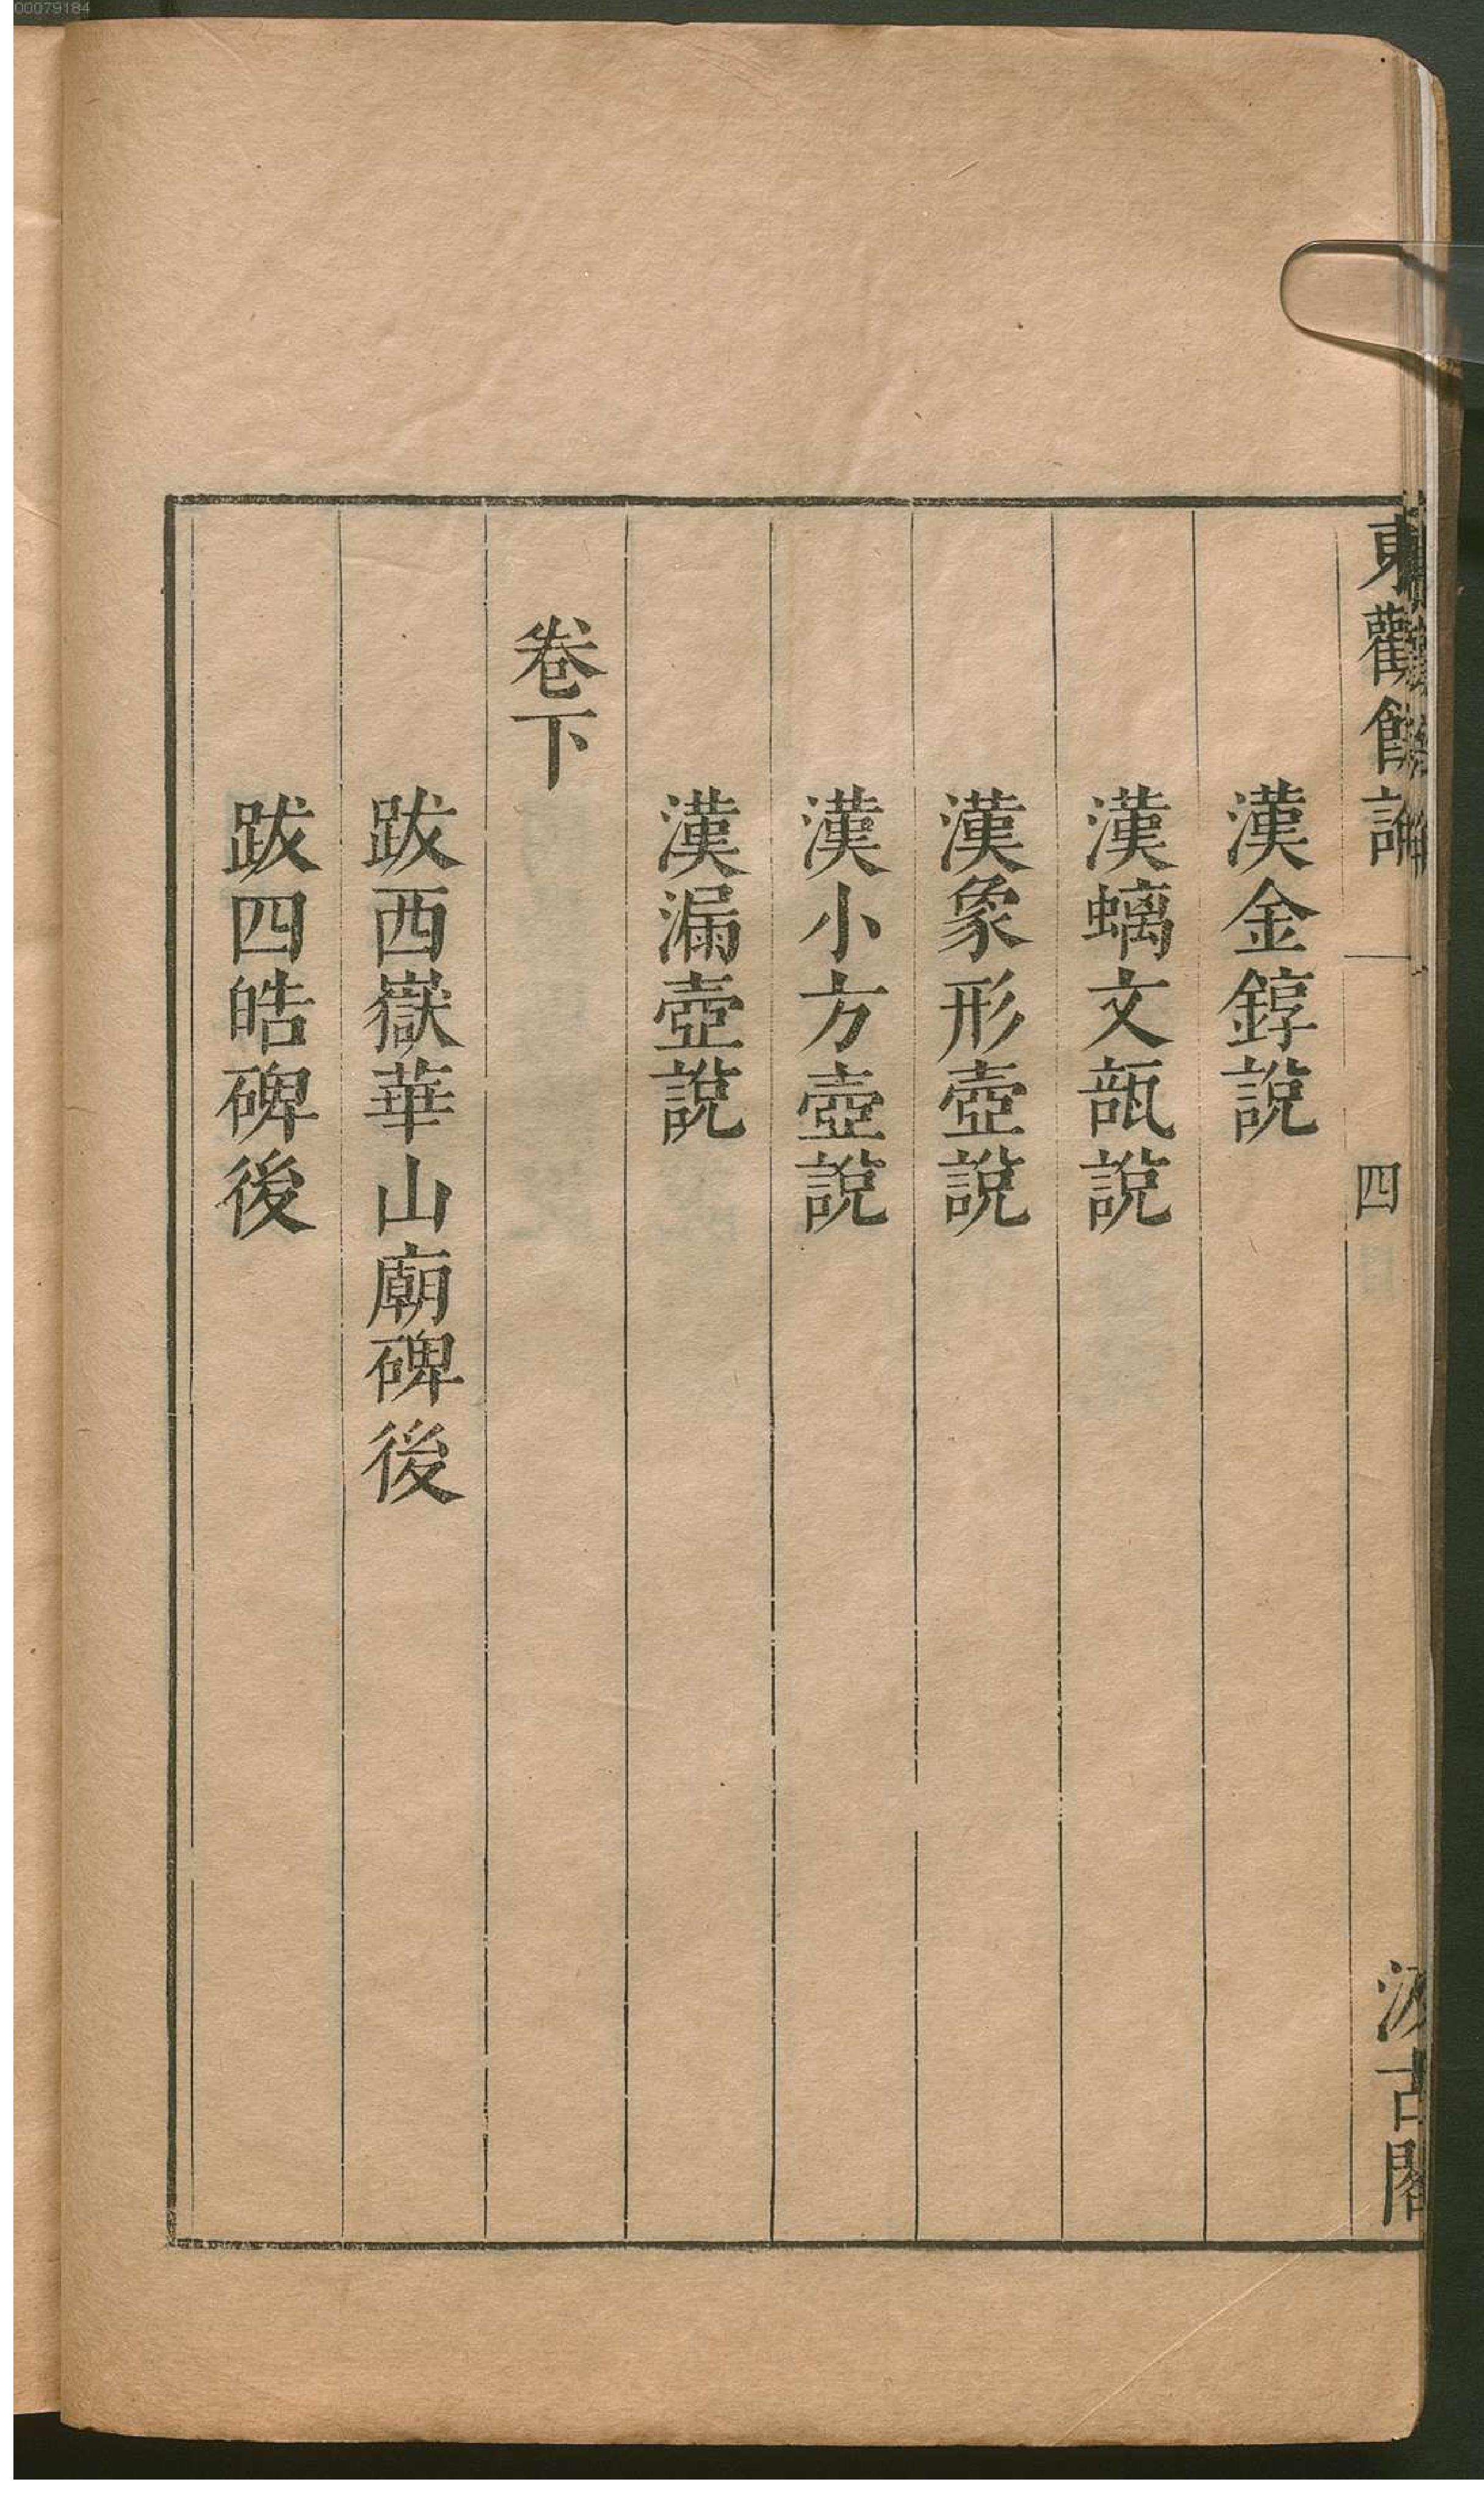 00079184
東觀餘論
四
汲古閣
漢金錞說
漢螭文瓿說
漢象形壺說
漢小方壺說
漢漏壺說
卷下
跋西嶽華山廟碑後
跋四皓碑後